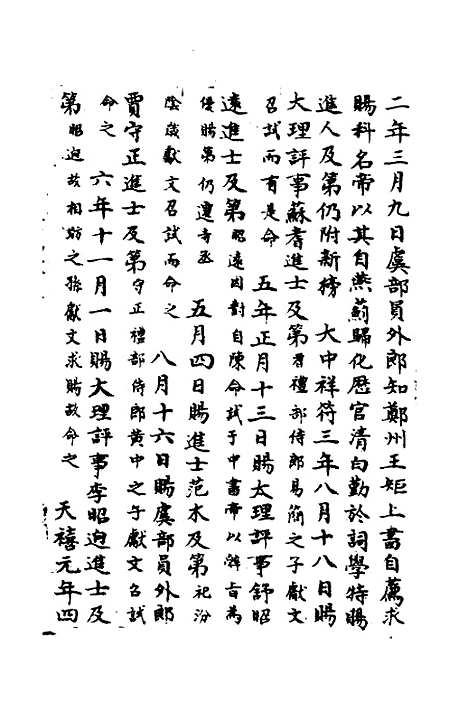 二年三月九日虞部員外郎知鄭州王矩上書自薦求
賜科名帝以其自燕薊歸化歷官清白勤於詞學特賜
進人及第仍附新榜　大中祥符三年八月十八日賜
大理評事蘇耆進士及第耆禮部侍郎易簡之子獻文
召試而有是命　五年正月十三日賜太理評事舒昭
遠進士及第昭遠因對自陳命試于中書帝以辭旨為
優賜第仍遷寺丞　五月四日賜進士范木及第祀汾
陰歲獻文召試而命之　八月十六日賜虞部員外郎
賈守正進士及第守正禮部侍郎黄中之子獻文召試
命之　六年十一月一日賜大理評事李昭逈進士及
第昭逈故相昉之孫獻文求賜故命之　天禧元年四